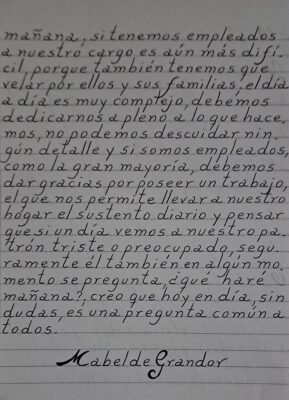 mañana, si tenemos empleados
a nuestro cargo es aún más difí-
cil, porque también tenemos que
velar por ellos y sus familias, el día
a día es muy complejo, debemos
dedicarnos a pleno a lo que hace-
mos, no podemos descuidar nin-
gún detalle y si somos empleados,
como la gran mayoría, debemos
dar gracias por poseer un trabajo,
el que nos permite llevar a nuestro
hogar el sustento diario y pensar
que si un día vemos a nuestro pa-
trón triste o preocupado, segu-
ramente él también en algún mo-
mento se pregunta, ¿qué haré
mañana?, creo que hoy en día, sin
dudas, es una pregunta común a
todos.
Mabel de Grandor